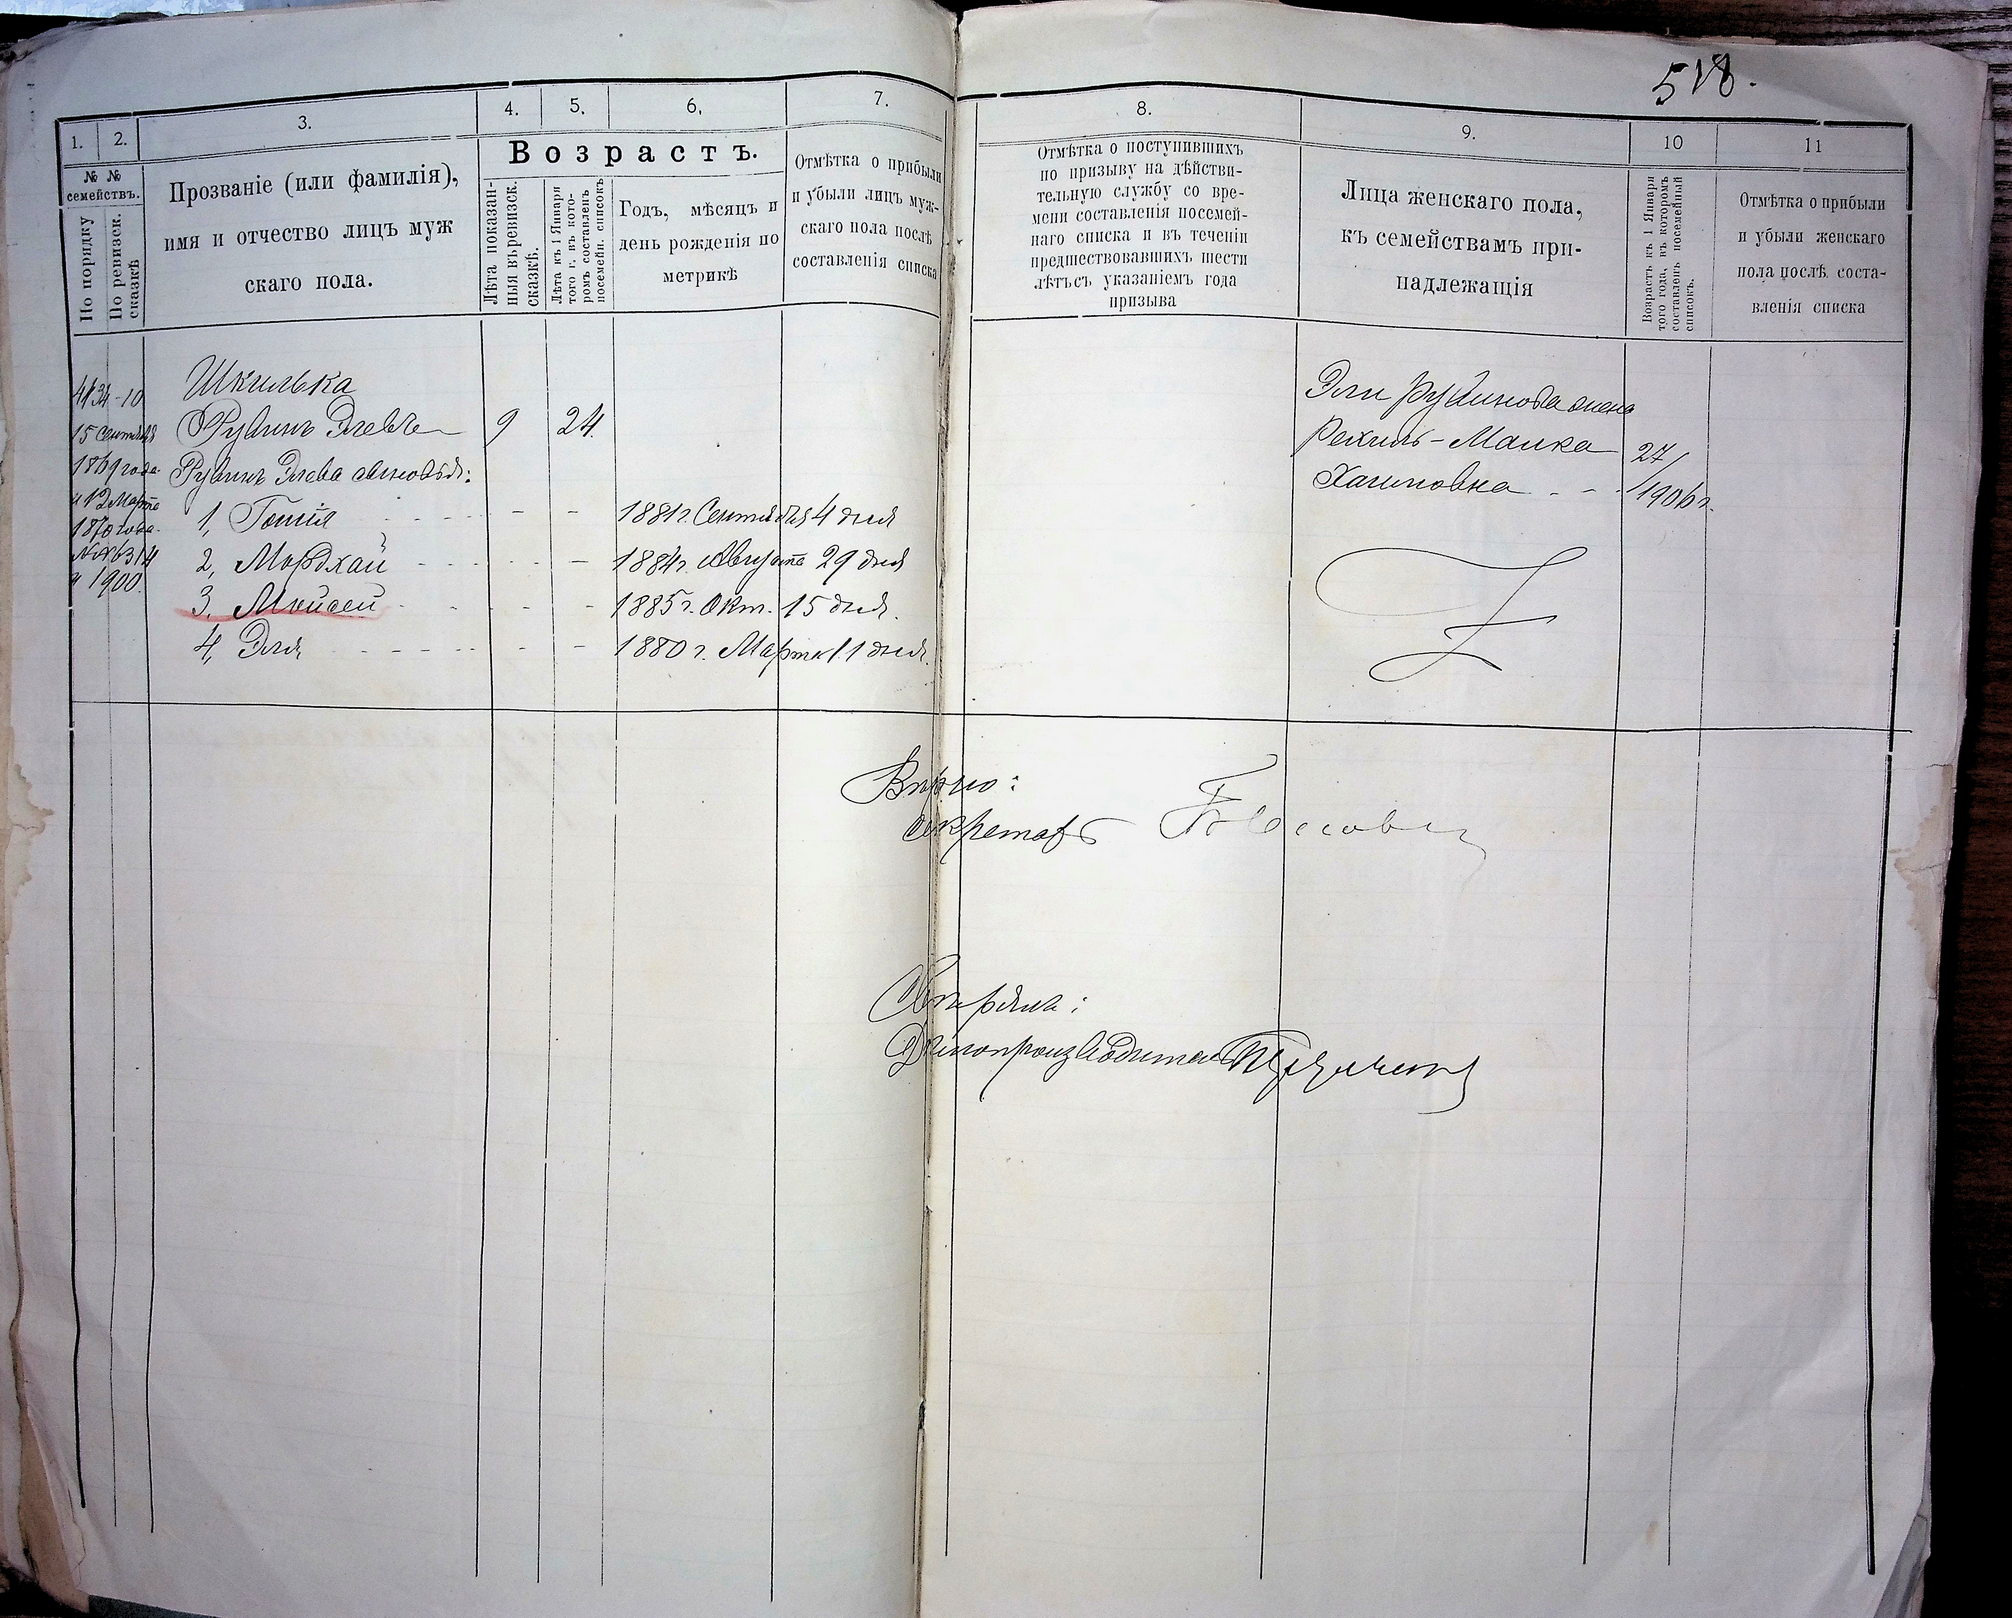 518.
1.
2.
3.
4.
5.
6.
7.
8.
9.
10
11
№ №
семействъ.
По порядку
По ревизск.
сказкѣ
Прозваніе (или фамилія),
имя и отчество лицъ муж
скаго пола.
Возрастъ.
Лѣта показан-
ныя въ ревизск.
сказкѣ.
Лѣта къ 1 Января
того г. въ кото-
ромъ составленъ
посемейн. списокъ
Годъ, мѣсяцъ и
день рожденія по
метрикѣ
Отмѣтка о прибыли
и убыли лицъ муж-
скаго пола послѣ
составленія списка
Отмѣтка о поступившихъ
по призыву на дѣйстви-
тельную службу со вре-
мени составленія посемей-
наго списка и въ теченіи
предшествовавшихъ шести
лѣтъ съ указаніемъ года
призыва
Лица женскаго пола,
къ семействамъ при-
надлежащія
Возрастъ къ 1 Января
того года, въ которомъ
составленъ посемейный
списокъ.
Отмѣтка о прибыли
и убыли женскаго
пола послѣ соста-
вленія списка
4134-10
15 Сентября
1869 года
и 12 Марта
1870 года
№№ 6314
и 1900.
Шкилька
Рувинъ Элевъ 9 24.
Рувина Элева сыновья:
1, Товія - - 1881 г. Сентября 4 дня
2, Мордхай - - 1884 г. Августа 29 дня
3, Мойсей - - 1885 г. Окт. 15 дня.
4, Эля - - 1880 г. Марта 11 дня.
Эли Рувинова жена
Рехиль-Малка 27/
Хаимовна - - /1906 г.
Вѣрно:
Секретарь
Свѣрялъ:
Дѣлопроизводитель